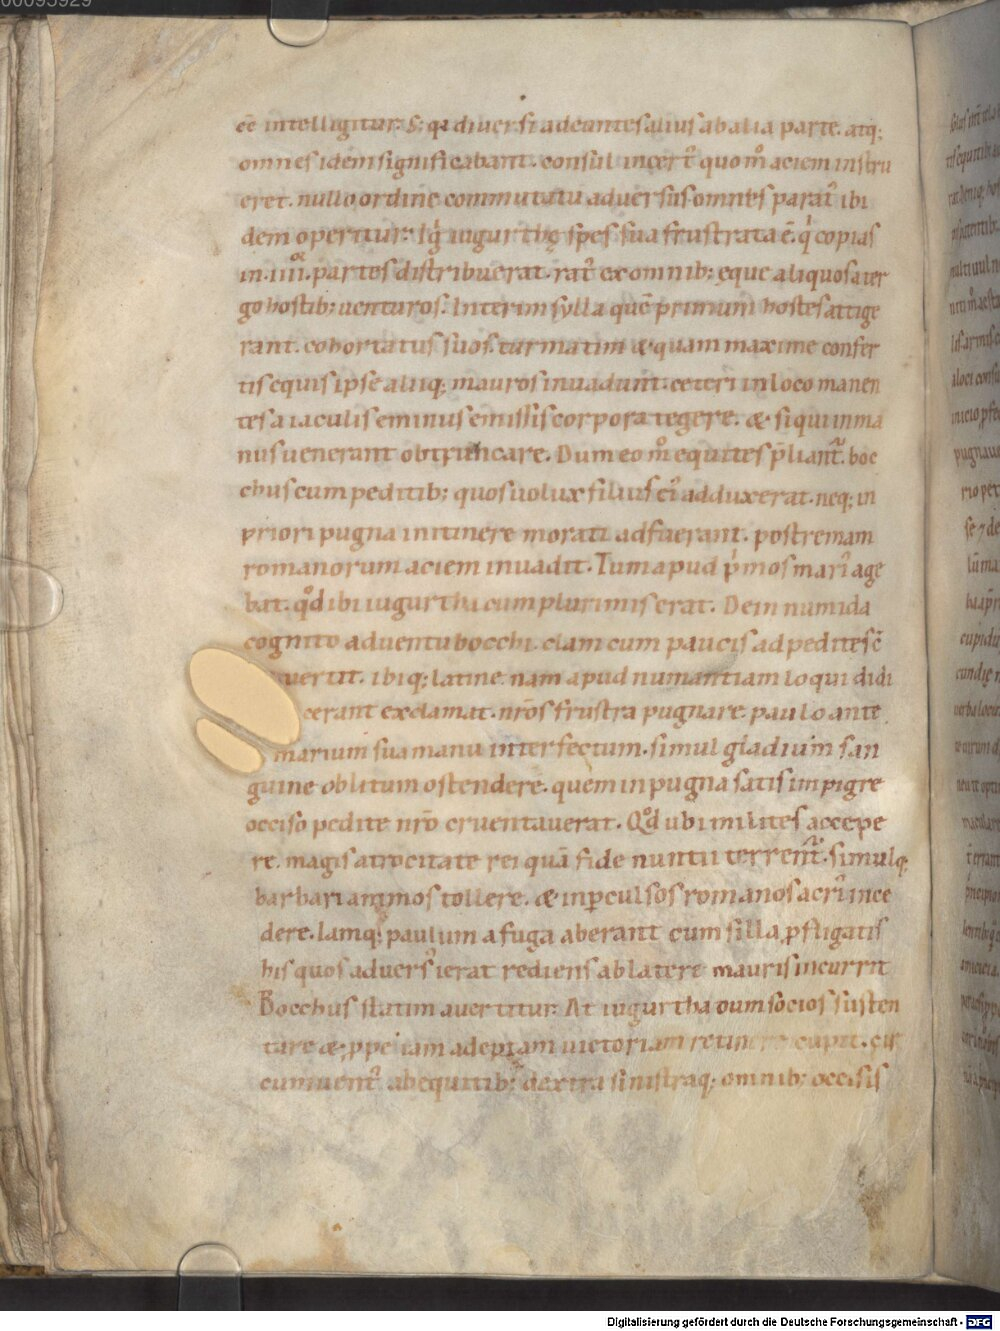 00095929
eē intelligitur. S; qa diuersi adeuntes alius ab alia parte. atq;
omnes idem significabant. consul incert̄ quom̊ aciem instru
eret. nullo ordine commutatu aduersus omnes parat̄ ibi
dem operitur. Iḡ iugurthę spes sua frustrata ē. q̇ copias
in .iiiiᵒʳ. partes distribuerat. rat̄ ex omnib; eque aliquos a ter
go hostib; uenturos. Interim sylla quē primum hostes attige
rant. cohortatus suos. turmatim & quam maxime confer
tis equis ipse aliiq; mauros inuadunt. ceteri in loco manen
tes a iaculis eminus emissis corpora tegere. & si qui in ma
nus uenerant obtruncare. Dum eo m̊ equites p̄liant̄. boc
chus cum peditib; quos uolux filius ei adduxerat. neq; in
priori pugna in itinere morati adfuerant. postremam
romanorum aciem inuadit. Tum apud p̍mos mari age
bat. qd̊ ibi iugurtha cum plurimis erat. Dein numida
cognito aduentu bocchi. clam cum paucis ad pedites c̄
uertit. ibiq; latine. nam apud numantiam loqui didi
cerant exclamat. nr̄os frustra pugnare. paulo ante
marium sua manu interfectum. simul gladium san
guine oblitum ostendere. quem in pugna satis impigre
occiso pedite nr̄o cruentauerat. Qd̊ ubi milites accepe
re. magis atrocitate rei quā fide nuntii terrent̄. simulq;
barbari animos tollere. & in ꝑculsos romanos acri incę
dere. Iamq; paulum a fuga aberant cum silla ꝓfligatis
his quos aduersˀ ierat rediens ab latere mauris incurrit
Bocchus statim auertitur. At iugurtha dum socios susten
tare & ꝓpe iam adeptam uictoriam retinere cupit. cir
cumuent̄ ab equitib; dextra sinistraq; omnib; occisis
Digitalisierung gefördert durch die Deutsche Forschungsgemeinschaft - DFG